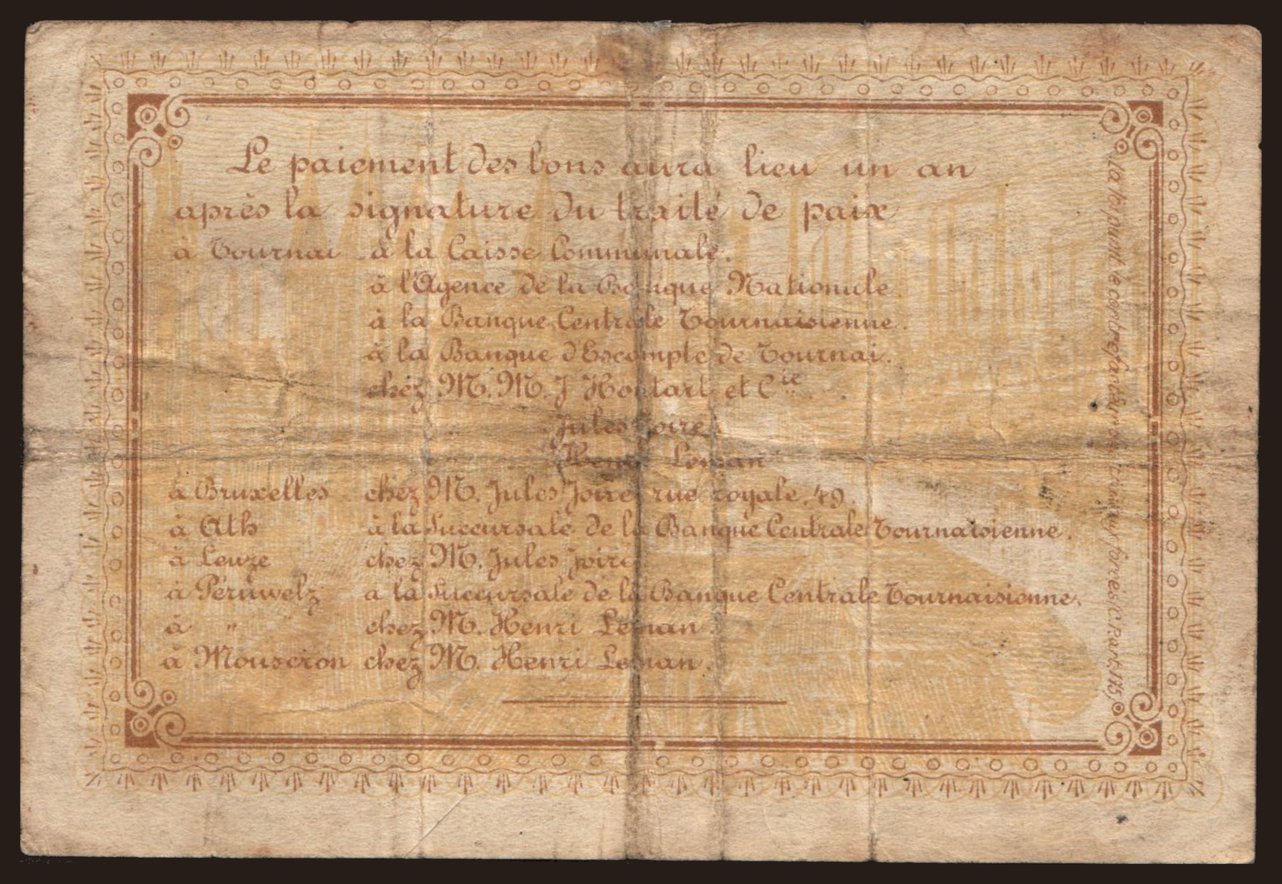 Le paiement des bons aura lieu un an
après la signature du traité de paix
à Tournai à la Caisse Communale.
à l'Agence de la Banque Nationale.
à la Banque Centrale Tournaisienne.
à la Banque d'Escompte de Tournai.
chez M.M. J Houtart et Cie
Jules Joire
Henri Leman
à Bruxelles chez M. Jules Joire, rue royale, 49.
à Ath à la Succursale de la Banque Centrale Tournaisienne.
à Leuze chez M. Jules Joire
à Péruwelz à la Succursale de la Banque Centrale Tournaisienne.
à " chez M. Henri Leman.
à Mouscron chez M. Henri Leman.
La loi punit le contrefacteur des travaux forcés